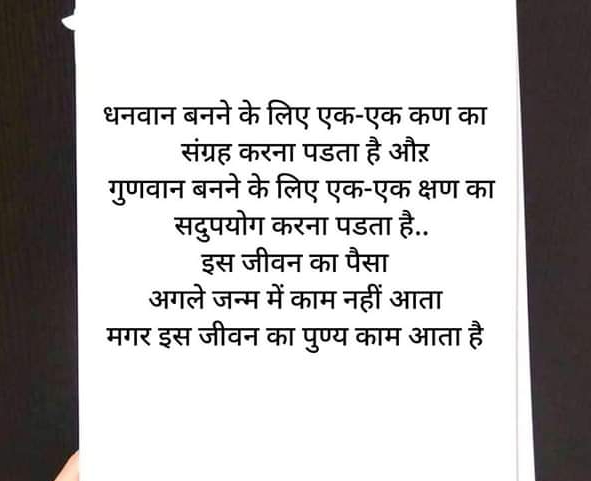 धनवान बनने के लिए एक-एक कण का
संग्रह करना पडता है औऱ
गुणवान बनने के लिए एक-एक क्षण का
सदुपयोग करना पडता है..
इस जीवन का पैसा
अगले जन्म में काम नहीं आता
मगर इस जीवन का पुण्य काम आता है